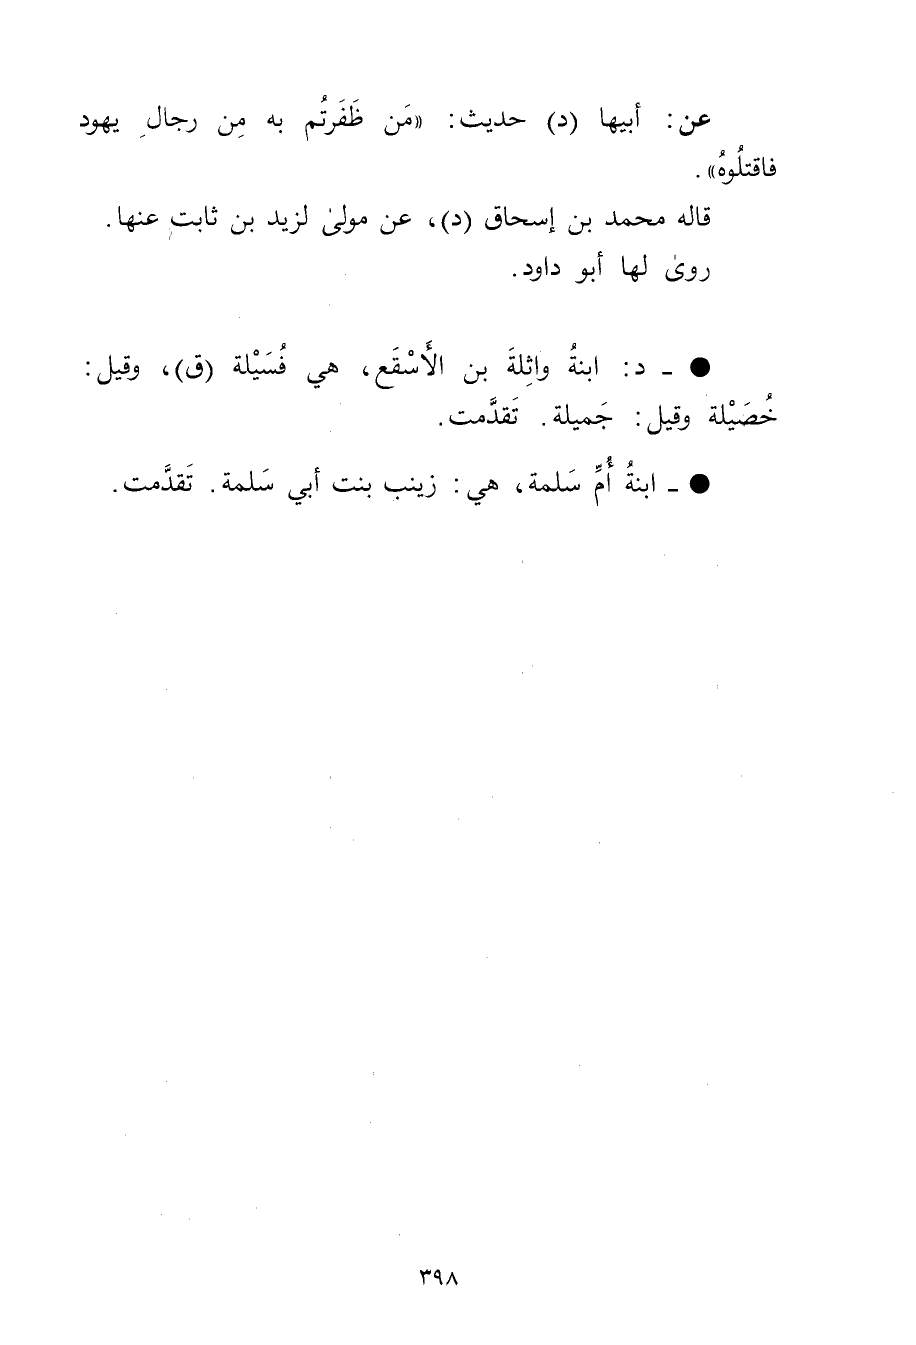 عن: أبيها (د) حديث: «مَن ظَفَرتُم به مِن رجالِ يهود
فاقتلُوهُ».
قاله محمد بن إسحاق (د)، عن مولىٰ لزيد بن ثابتٍ عنها.
روىٰ لها أبو داود.
● ـ د: ابنةُ واثِلةَ بن الأَسْقَع، هي فُسَيْلة (ق)، وقيل:
خُصَيْلة وقيل: جَميلة. تَقدَّمت.
● ـ ابنةُ أُمِّ سَلمة، هي: زينب بنت أبي سَلمة. تَقدَّمت.
٣٩٨